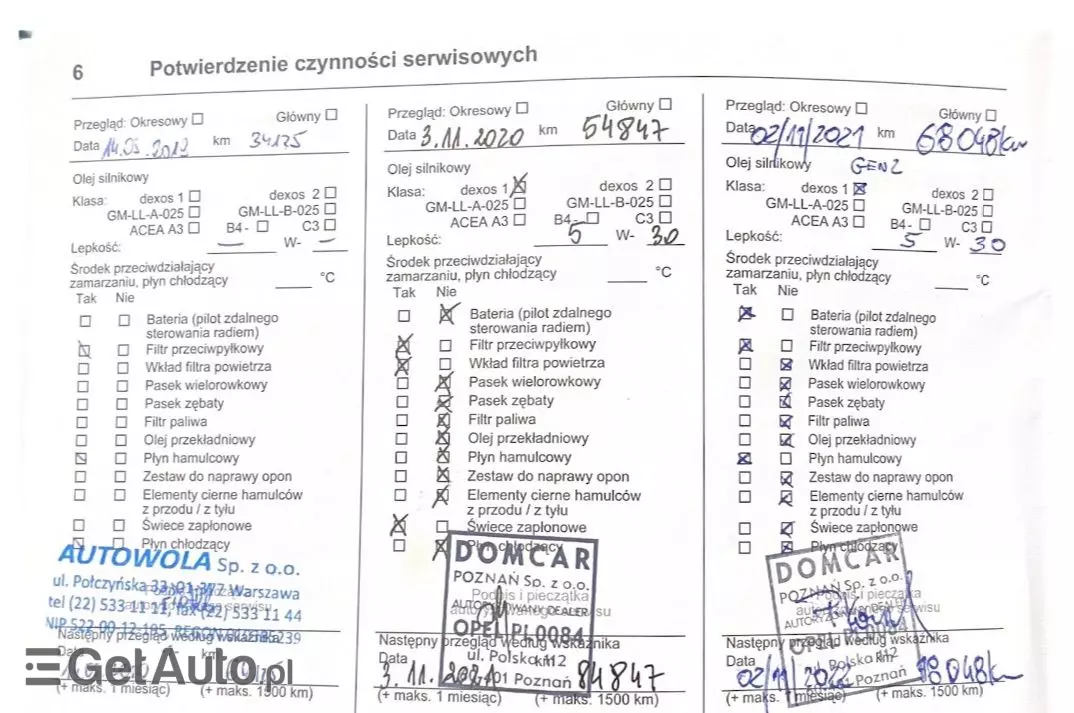 6 Potwierdzenie czynności serwisowych
Przegląd: Okresowy Główny
Data km 34125
Olej silnikowy
Klasa: dexos 1 dexos 2
GM-LL-A-025 GM-LL-B-025
ACEA A3 B4 - C3
Lepkość: — W- —
Środek przeciwdziałający
zamarzaniu, płyn chłodzący °C
Tak Nie
Bateria (pilot zdalnego
sterowania radiem)
Filtr przeciwpyłkowy
Wkład filtra powietrza
Pasek wielorowkowy
Pasek zębaty
Filtr paliwa
Olej przekładniowy
Płyn hamulcowy
Zestaw do naprawy opon
Elementy cierne hamulców
z przodu / z tyłu
Świece zapłonowe
Płyn chłodzący
AUTOWOLA Sp. z o.o.
ul. Połczyńska 33, 01-377 Warszawa
tel (22) 533 11 11, fax (22) 533 11 44
Następny przegląd według wskaźnika
Data km
(+ maks. 1 miesiąc) (+ maks. 1500 km)
GetAuto.pl
Przegląd: Okresowy Główny
Data 3.11.2020 km 54847
Olej silnikowy
Klasa: dexos 1 dexos 2
GM-LL-A-025 GM-LL-B-025
ACEA A3 B4 - C3
Lepkość: 5 W- 30
Środek przeciwdziałający
zamarzaniu, płyn chłodzący °C
Tak Nie
Bateria (pilot zdalnego
sterowania radiem)
Filtr przeciwpyłkowy
Wkład filtra powietrza
Pasek wielorowkowy
Pasek zębaty
Filtr paliwa
Olej przekładniowy
Płyn hamulcowy
Zestaw do naprawy opon
Elementy cierne hamulców
z przodu / z tyłu
Świece zapłonowe
Płyn chłodzący
DOMCAR
POZNAŃ Sp. z o.o.
Podpis i pieczątka
AUTORYZOWANY DEALER
OPEL PL0084
Następny przegląd według wskaźnika
ul. Polska 112
Data km
3.11.2021 Poznań 84847
(+ maks. 1 miesiąc) (+ maks. 1500 km)
Przegląd: Okresowy Główny
Data 02/11/2021 km 68048km
Olej silnikowy GEN2
Klasa: dexos 1 dexos 2
GM-LL-A-025 GM-LL-B-025
ACEA A3 B4 - C3
Lepkość: 5 W- 30
Środek przeciwdziałający
zamarzaniu, płyn chłodzący °C
Tak Nie
Bateria (pilot zdalnego
sterowania radiem)
Filtr przeciwpyłkowy
Wkład filtra powietrza
Pasek wielorowkowy
Pasek zębaty
Filtr paliwa
Olej przekładniowy
Płyn hamulcowy
Zestaw do naprawy opon
Elementy cierne hamulców
z przodu / z tyłu
Świece zapłonowe
Płyn chłodzący
DOMCAR
POZNAŃ Sp. z o.o.
Podpis i pieczątka
Następny przegląd według wskaźnika
Data Polska 112 km
02/11/2022 Poznań 98048km
(+ maks. 1 miesiąc) (+ maks. 1500 km)